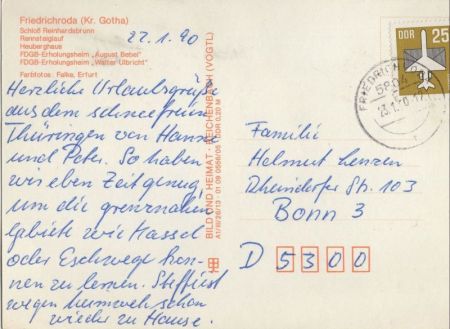 Friedrichroda (Kr. Gotha)
Schloß Reinhardsbrunn
Rennsteiglauf
Heuberghaus
FDGB-Erholungsheim „August Bebel"
FDGB-Erholungsheim „Walter Ulbricht"
Farbfotos: Falke, Erfurt
22.1.90
Herzliche Urlaubsgrüße
aus dem schneefreien
Thüringen von Hanna
und Peter. So haben
wir eben Zeit genug,
um die grenznahen
Gebiete wie Kassel
oder Eschwege ken-
nen zu lernen. Steffi ist
wegen Heimweh schon
wieder zu Hause.
BILD UND HEIMAT REICHENBACH (VOGTL)
A1/III/26/13 01 09 0556/05 DDR 0,20 M
DDR 25
FRIEDRICHRODA
5804
23.1.90
Familie
Helmut Lenzen
Rheindorfer St. 103
Bonn 3
D 5300